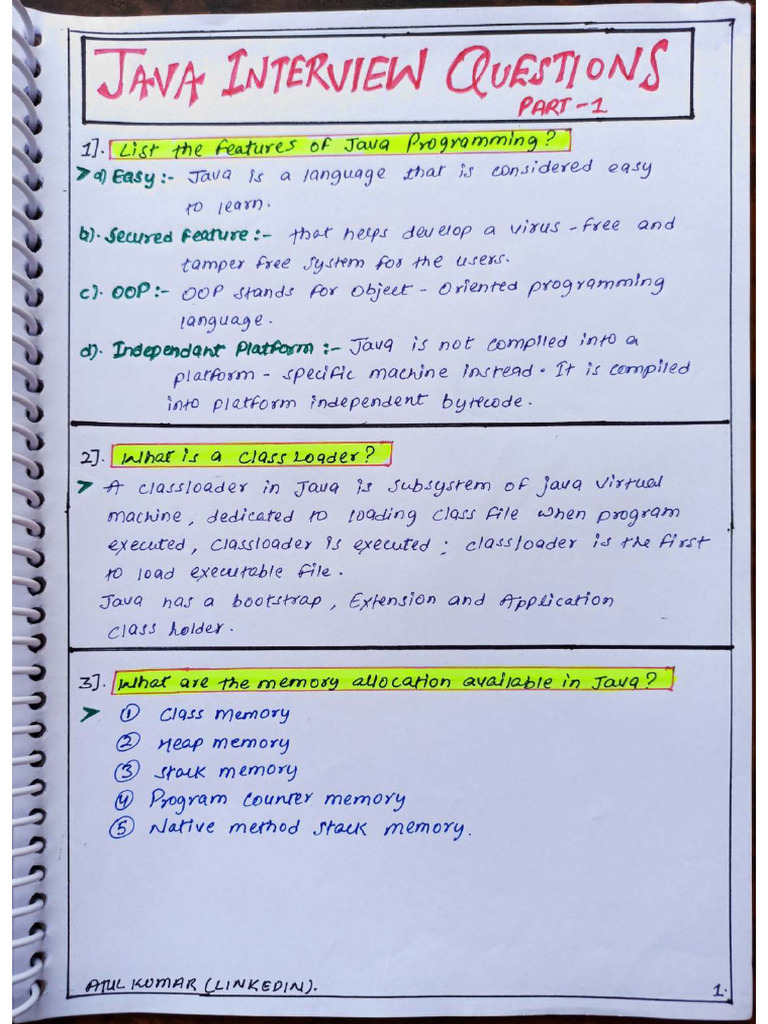 JAVA INTERVIEW QUESTIONS
PART-1
1]. List the features of Java Programming?
a) Easy :- Java is a language that is considered easy
to learn.
b). Secured Feature :- that helps develop a virus-free and
tamper free system for the users.
c). OOP :- OOP stands for Object-Oriented programming
language.
d). Independant Platform :- Java is not compiled into a
platform-specific machine instead. It is compiled
into platform independent bytecode.
2]. What is a class Loader?
A classloader in Java is subsystem of java virtual
machine, dedicated to loading class file when program
executed, classloader is executed; classloader is the first
to load executable file.
Java has a bootstrap, Extension and Application
class holder.
3]. What are the memory allocation available in Java?
① Class memory
② Heap memory
③ Stack memory
④ Program counter memory
⑤ Native method stack memory.
ATUL KUMAR (LINKEDIN).
1.